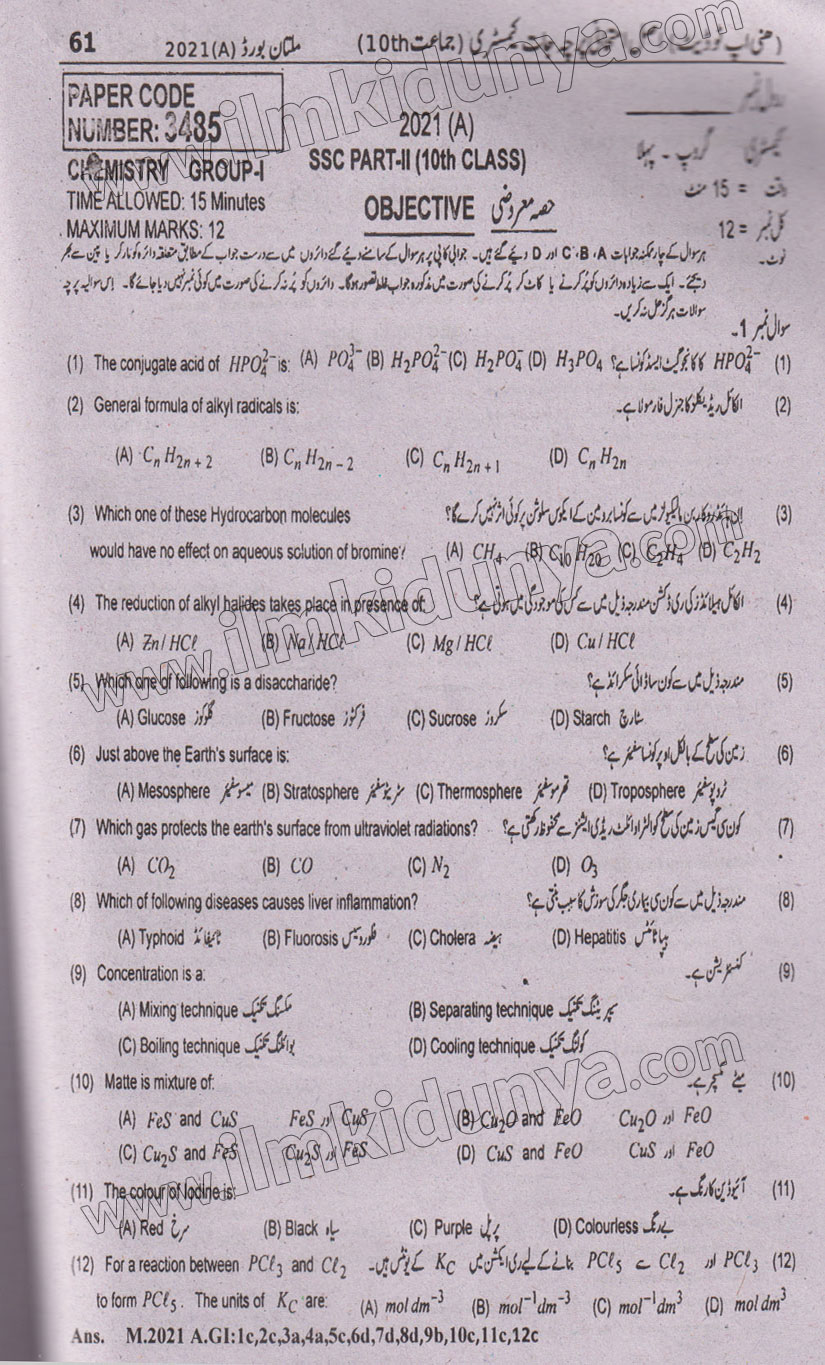 61 ملتان بورڈ (A)2021 کیمسٹری (جماعت 10th)
PAPER CODE
NUMBER: 3485
2021 (A)
رول نمبر
CHEMISTRY GROUP-I
SSC PART-II (10th CLASS)
کیمسٹری گروپ - پہلا
TIME ALLOWED: 15 Minutes
OBJECTIVE حصہ معروضی
وقت = 15 منٹ
MAXIMUM MARKS: 12
کل نمبر = 12
نوٹ۔ ہر سوال کے چار ممکنہ جوابات A، B، C اور D دیئے گئے ہیں۔ جوابی کاپی پر ہر سوال کے سامنے دیئے گئے دائروں میں سے درست جواب کے مطابق متعلقہ دائرہ کو مارکر یا پین سے بھر
دیجئے۔ ایک سے زیادہ دائروں کو پُر کرنے یا کاٹ کر پُر کرنے کی صورت میں مذکورہ جواب غلط تصور ہوگا۔ دائروں کو پُر نہ کرنے کی صورت میں کوئی نمبر نہیں دیا جائے گا۔ اِس سوالیہ پرچہ پر
سوالات ہرگز حل نہ کریں۔
سوال نمبر 1۔
(1) The conjugate acid of HPO₄²⁻ is: (A) PO₄³⁻ (B) H₂PO₄²⁻ (C) H₂PO₄⁻ (D) H₃PO₄ HPO₄²⁻ کا کانجوگیٹ ایسڈ کونسا ہے؟ (1)
(2) General formula of alkyl radicals is: الکائل ریڈیکلز کا جنرل فارمولا ہے۔ (2)
(A) CₙH₂ₙ₊₂ (B) CₙH₂ₙ₋₂ (C) CₙH₂ₙ₊₁ (D) CₙH₂ₙ
(3) Which one of these Hydrocarbon molecules اِن ہائیڈروکاربن مالیکیولز میں سے کونسا برومین کے ایکوس سلوشن پر کوئی اثر نہیں کرے گا؟ (3)
would have no effect on aqueous solution of bromine? (A) CH₄ (B) C₁₀H₂₀ (C) C₂H₄ (D) C₂H₂
(4) The reduction of alkyl halides takes place in presence of: الکائل ہیلائڈز کی ری ڈکشن مندرجہ ذیل میں سے کس کی موجودگی میں ہوتی ہے؟ (4)
(A) Zn/HCℓ (B) Na/HCℓ (C) Mg/HCℓ (D) Cu/HCℓ
(5) Which one of following is a disaccharide? مندرجہ ذیل میں سے کون سا ڈائی سکرائڈ ہے؟ (5)
(A) Glucose گلوکوز (B) Fructose فرکٹوز (C) Sucrose سکروز (D) Starch سٹارچ
(6) Just above the Earth's surface is: زمین کی سطح کے بالکل اوپر کونسا سفیئر ہے؟ (6)
(A) Mesosphere میسوسفیئر (B) Stratosphere سٹریٹوسفیئر (C) Thermosphere تھرموسفیئر (D) Troposphere ٹروپوسفیئر
(7) Which gas protects the earth's surface from ultraviolet radiations? کون سی گیس زمین کی سطح کو الٹراوائلٹ ریڈی ایشنز سے محفوظ رکھتی ہے؟ (7)
(A) CO₂ (B) CO (C) N₂ (D) O₃
(8) Which of following diseases causes liver inflammation? مندرجہ ذیل میں سے کون سی بیماری جگر کی سوزش کا سبب بنتی ہے؟ (8)
(A) Typhoid ٹائیفائڈ (B) Fluorosis فلوروسیس (C) Cholera ہیضہ (D) Hepatitis ہیپاٹائٹس
(9) Concentration is a: کنسنٹریشن ہے۔ (9)
(A) Mixing technique مکسنگ تکنیک (B) Separating technique سیپریٹنگ تکنیک
(C) Boiling technique بوائلنگ تکنیک (D) Cooling technique کولنگ تکنیک
(10) Matte is mixture of: میٹے مکسچر ہے۔ (10)
(A) FeS and CuS FeS اور CuS (B) Cu₂O and FeO Cu₂O اور FeO
(C) Cu₂S and FeS Cu₂S اور FeS (D) CuS and FeO CuS اور FeO
(11) The colour of Iodine is: آئیوڈین کا رنگ ہے۔ (11)
(A) Red سرخ (B) Black سیاہ (C) Purple پرپل (D) Colourless بے رنگ
(12) For a reaction between PCℓ₃ and Cℓ₂ PCℓ₃ اور Cℓ₂ سے PCℓ₅ بنانے کے لیے ری ایکشن میں K_C کے یونٹس ہیں۔ (12)
to form PCℓ₅. The units of K_C are: (A) mol dm⁻³ (B) mol⁻¹dm⁻³ (C) mol⁻¹dm³ (D) mol dm³
Ans. M.2021 A.GI:1c,2c,3a,4a,5c,6d,7d,8d,9b,10c,11c,12c
www.ilmkidunya.com
www.ilmkidunya.com
www.ilmkidunya.com